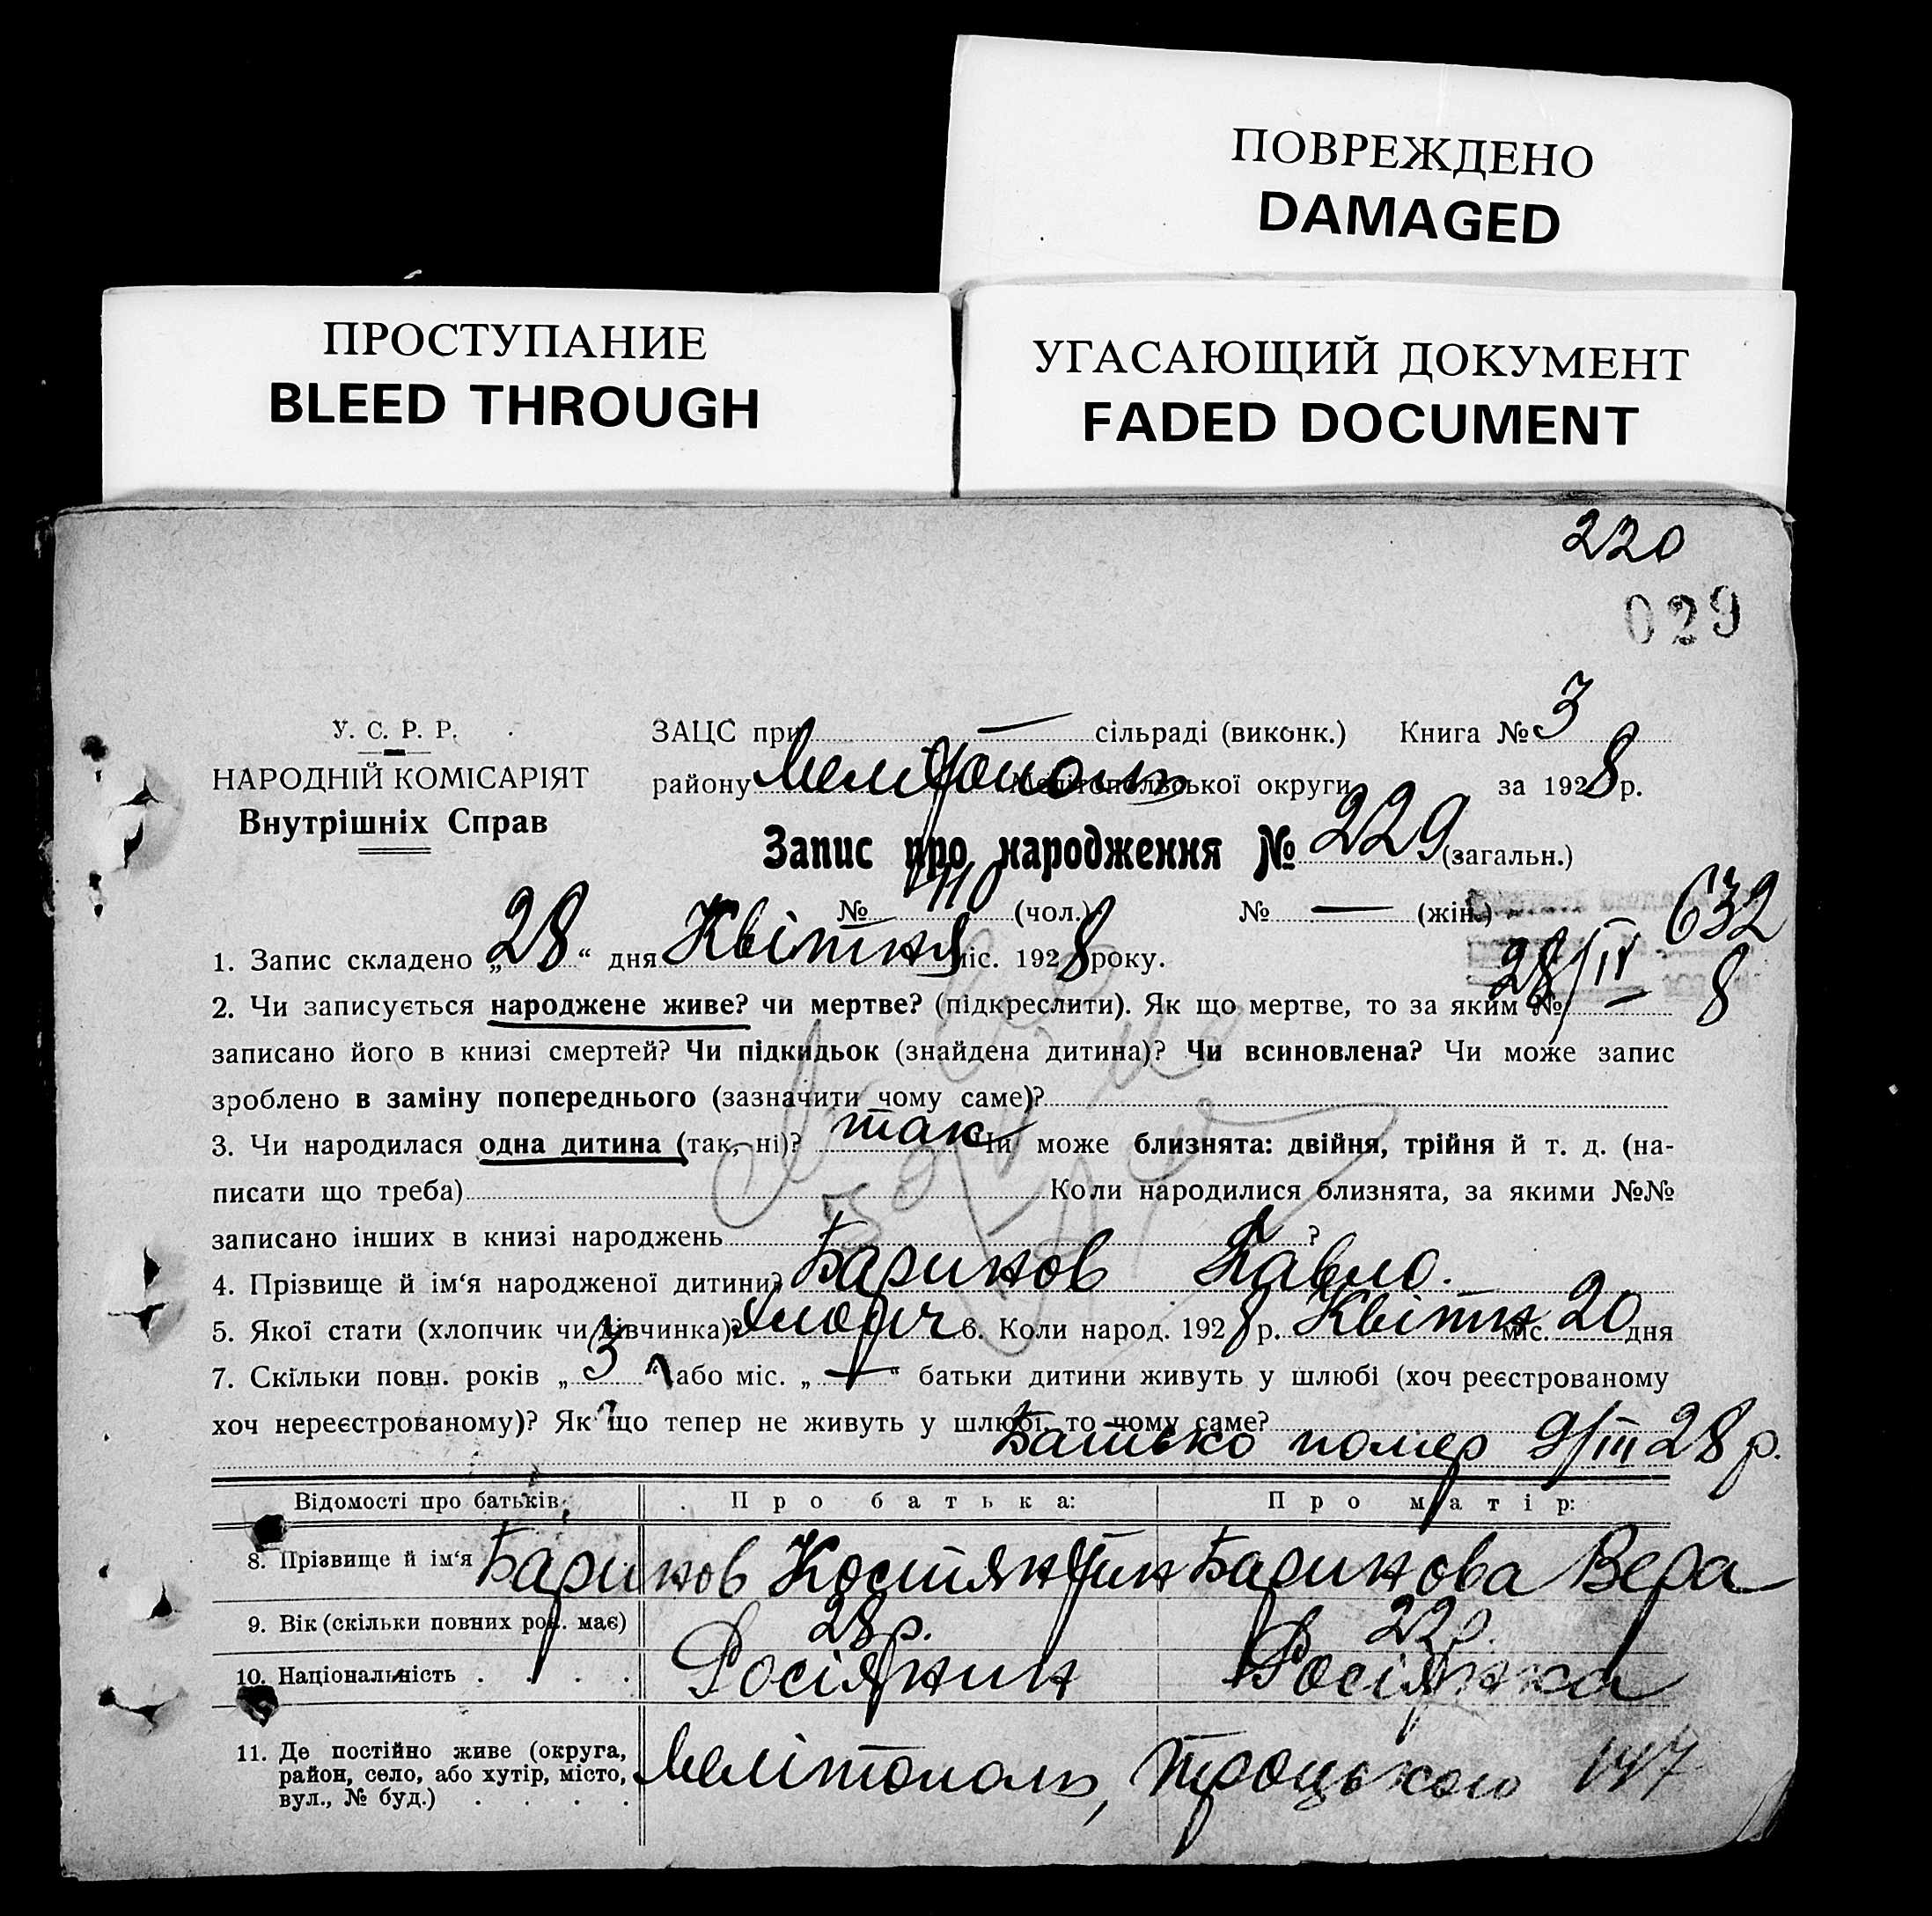 ПОВРЕЖДЕНО
DAMAGED
ПРОСТУПАНИЕ
BLEED THROUGH
УГАСАЮЩИЙ ДОКУМЕНТ
FADED DOCUMENT
220
029
У. С. Р. Р.
НАРОДНІЙ КОМІСАРІЯТ
Внутрішніх Справ
ЗАЦС при — сільраді (виконк.) Книга № 3
району Мелітополь Мелітопольської округи за 1928 р.
Запис про народження № 229 (загальн.)
№ 110 (чол.) № — (жін.)
632
28/IV 8
1. Запис складено „28“ дня Квітня міс. 1928 року.
2. Чи записується народжене живе? чи мертве? (підкреслити). Як що мертве, то за яким №
записано його в книзі смертей? Чи підкидьок (знайдена дитина)? Чи всиновлена? Чи може запис
зроблено в заміну попереднього (зазначити чому саме)?
3. Чи народилася одна дитина (так, ні)? так Чи може близнята: двійня, трійня й т. д. (на-
писати що треба) Коли народилися близнята, за якими №№
записано інших в книзі народжень ?
4. Прізвище й ім‘я народженої дитини? Баринов Павло.
5. Якої стати (хлопчик чи дівчинка)? хлопч 6. Коли народ. 1928 р. Квітня міс. 20 дня
7. Скільки повн. років „3“ або міс. „—“ батьки дитини живуть у шлюбі (хоч реєстрованому
хоч нереєстрованому)? Як що тепер не живуть у шлюбі, то чому саме?
Батько помер 9/III 28 р.
Відомості про батьків: Про батька: Про матір:
8. Прізвище й ім‘я Баринов Костянтин Баринова Вера
9. Вік (скільки повних рок. має) 28 р. 22 р.
10. Національність . . . . Росіянин Росіянка
11. Де постійно живе (округа, район, село, або хутір, місто, вул., № буд.) . . . . Мелітополь, Троцького 147